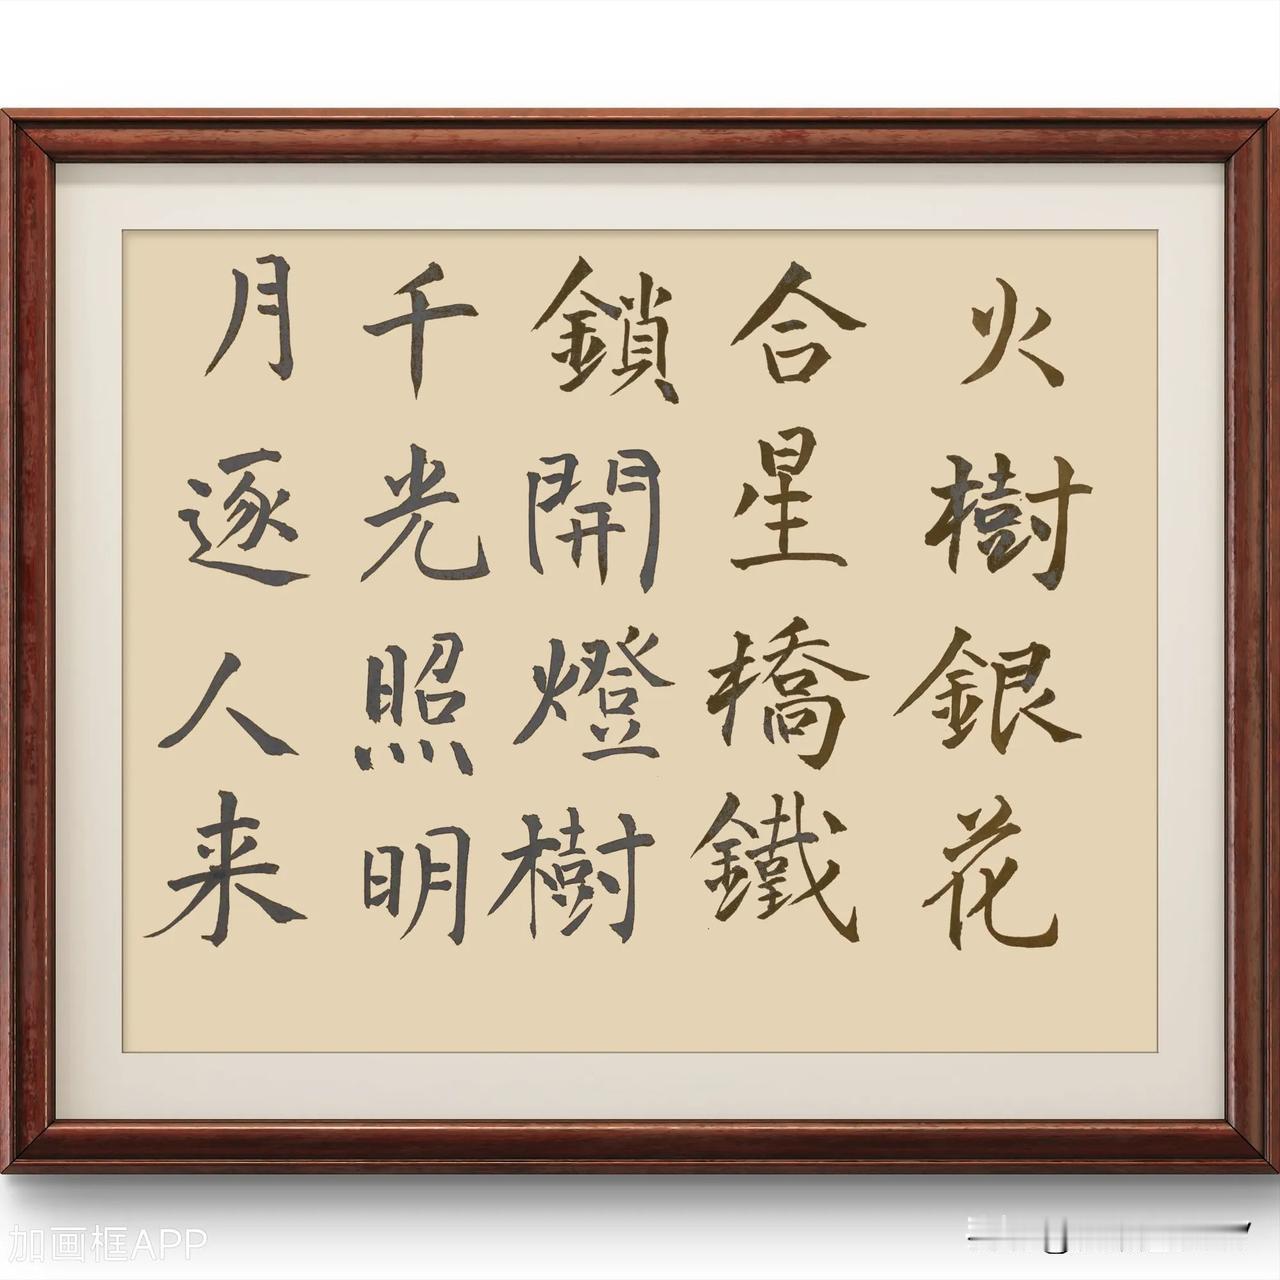 火樹銀花
合星橋鐵
鎖開燈樹
千光照明
月逐人来
加画框APP